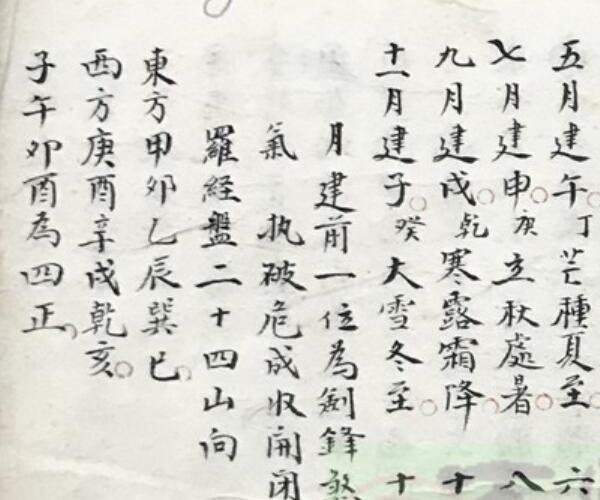 五月建午丁芒種夏至六
七月建申庚立秋處暑八
九月建戌乾寒露霜降十
十一月建子癸大雪冬至十
月建前一位為劍鋒煞
氣 执破危成收開闭
羅經盤二十四山向
東方甲卯乙辰巽巳
西方庚酉辛戌乾亥
子午卯酉為四正